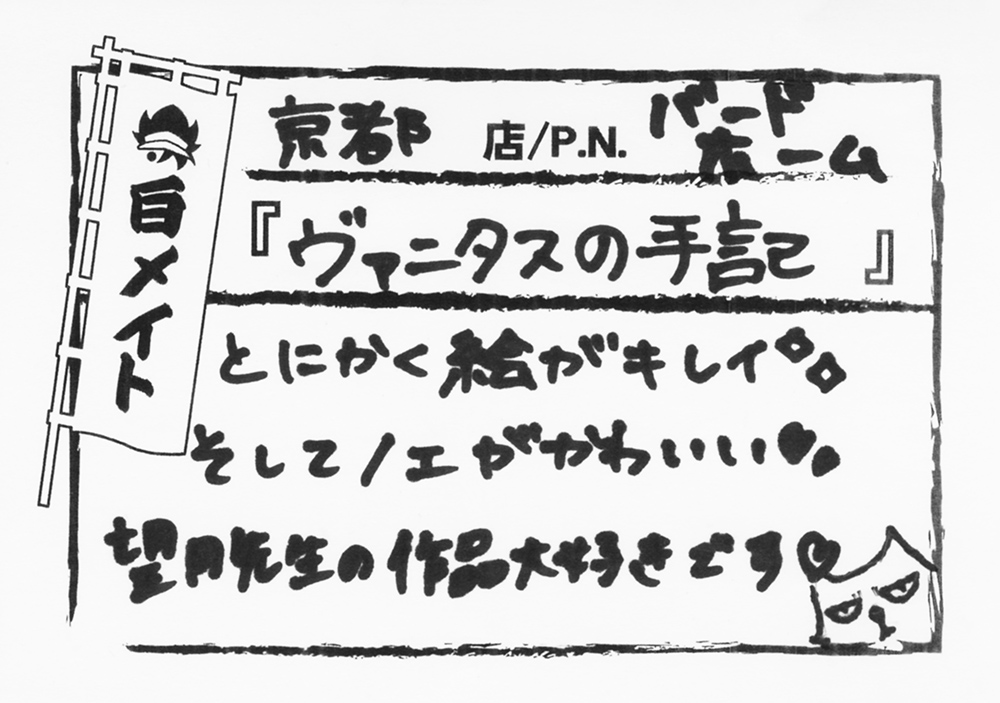 旨メイト
京都 店/P.N. バードホーム
『ヴァニタスの手記』
とにかく絵がキレイ
そしてノエがかわいい
望月先生の作品大好きです